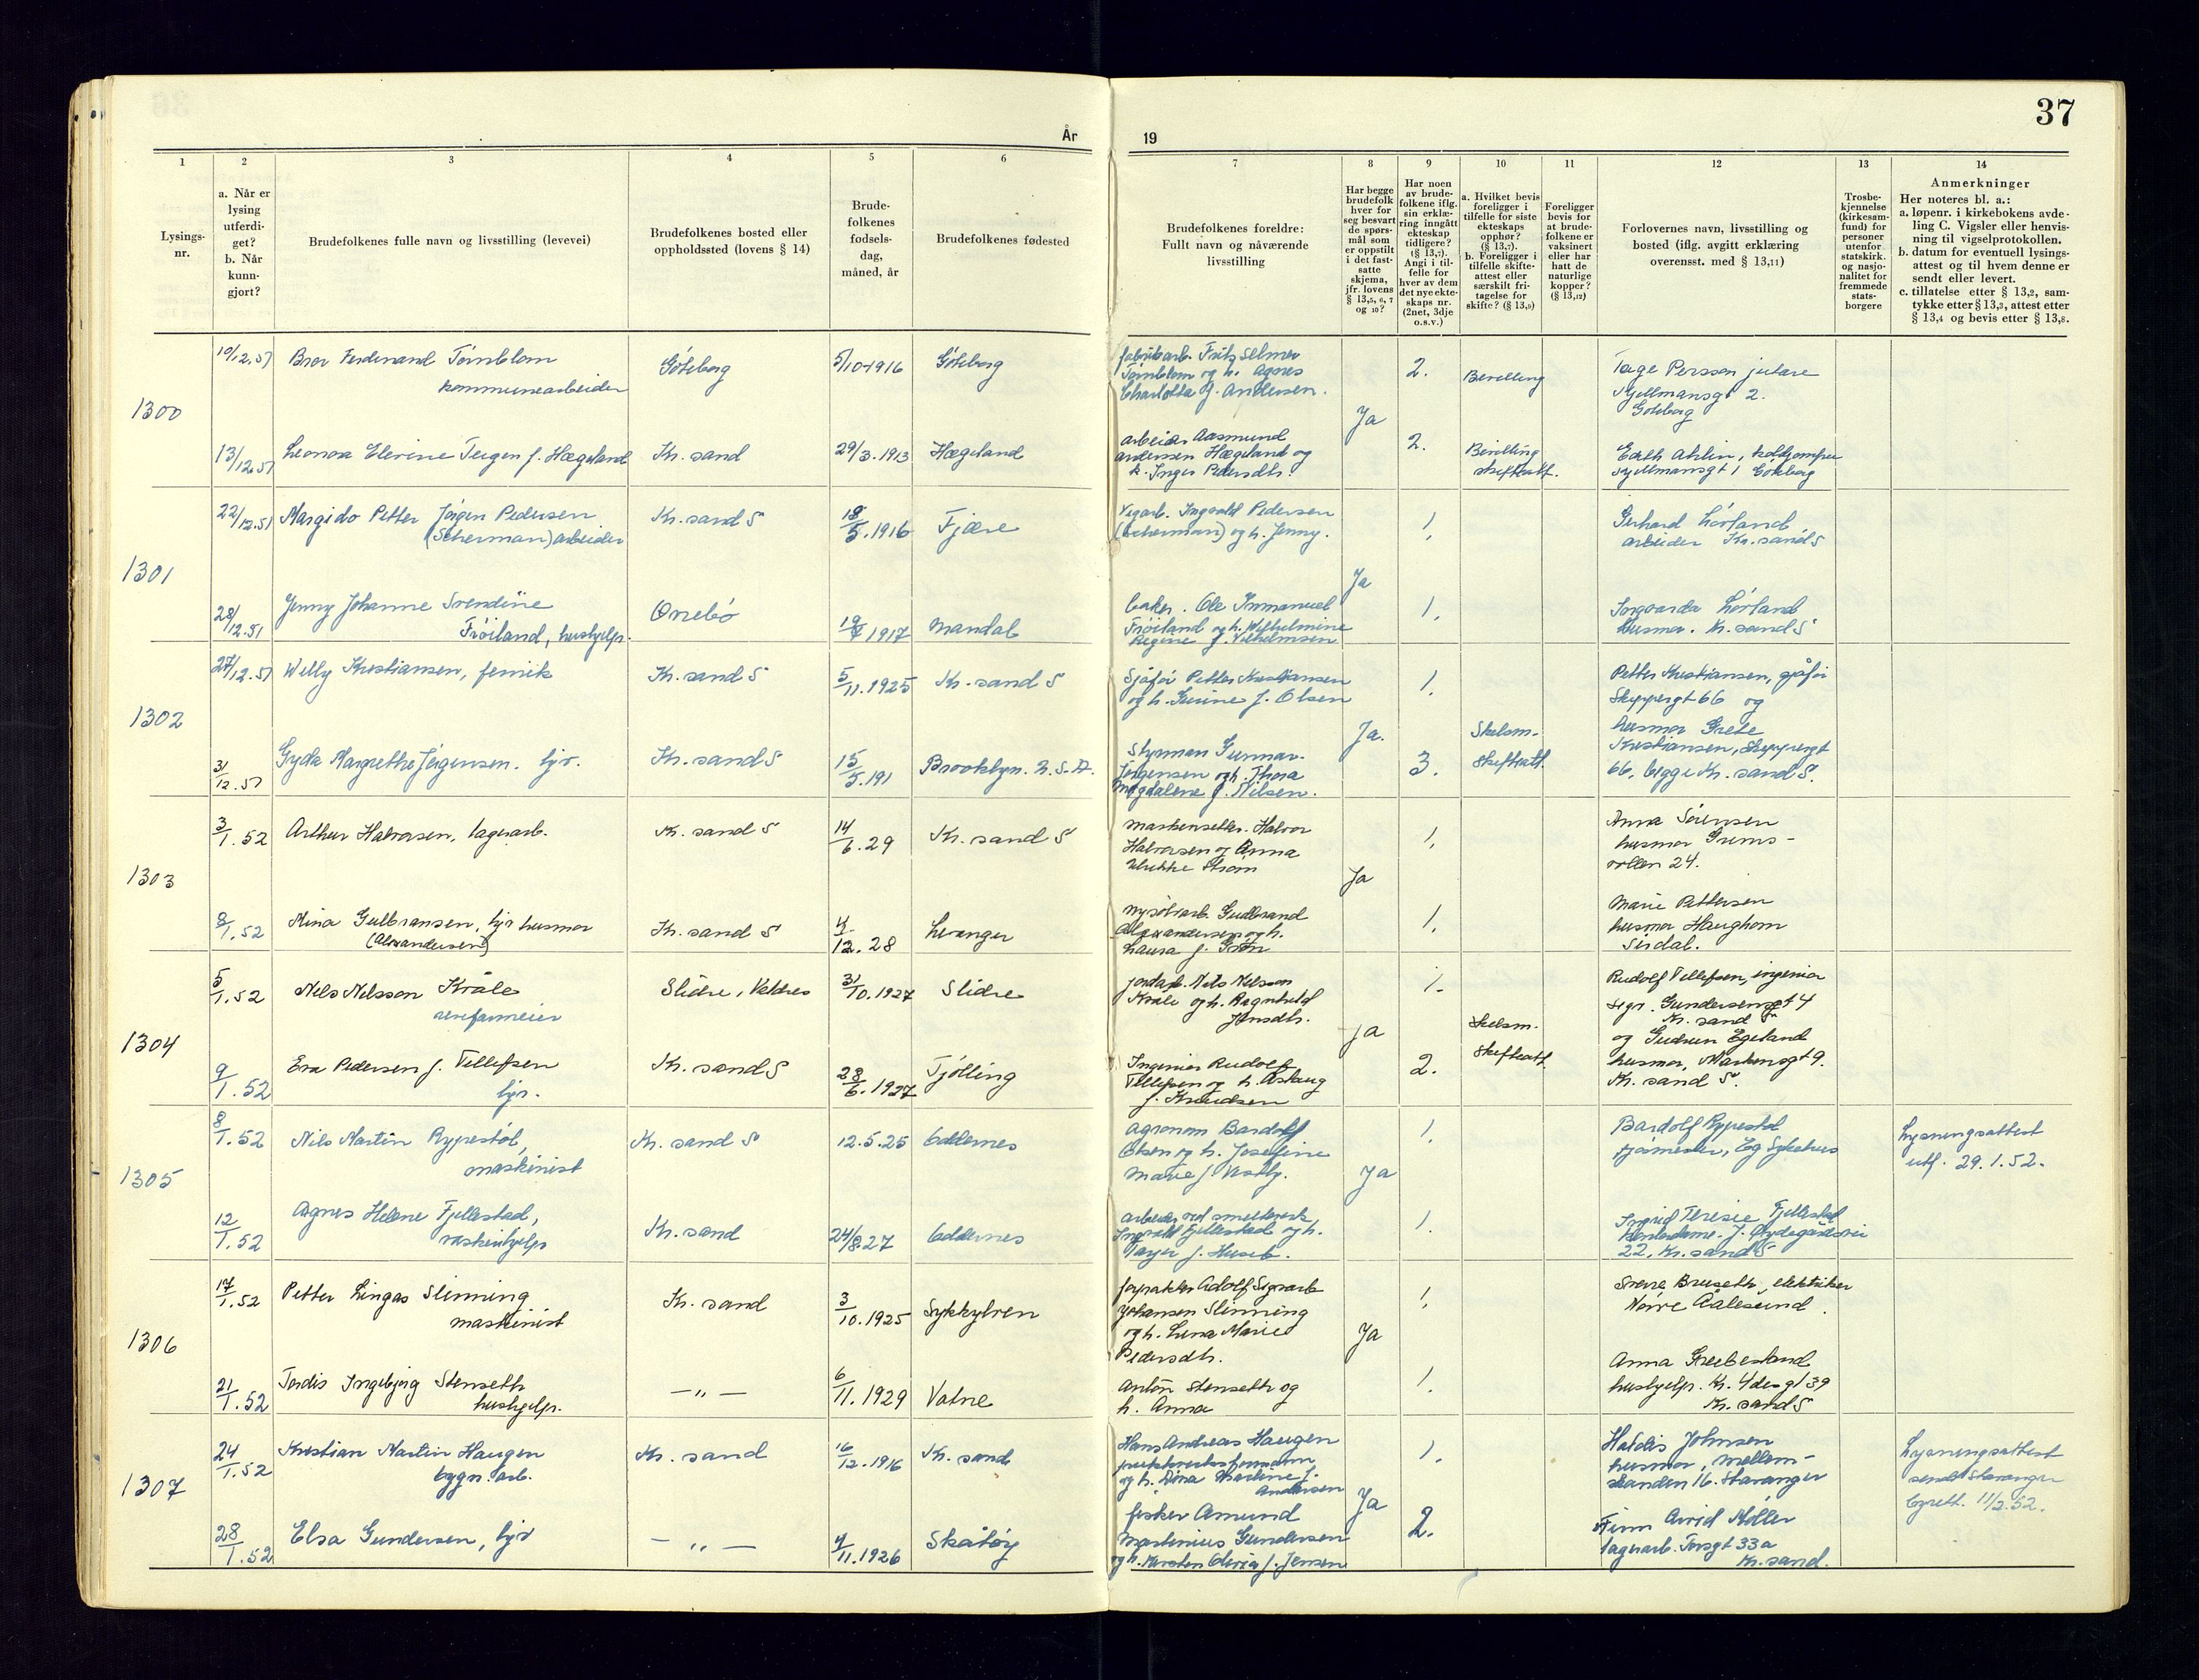 37
År 19
1 2 3 4 5 6 7 8 9 10 11 12 13 14
Lysings-
nr.
a. Når er
lysing
utferdi-
get?
b. Når
kunn-
gjort?
Brudefolkenes fulle navn og livsstilling (levevei)
Brudefolkenes bosted eller
oppholdssted (lovens § 14)
Brude-
folkenes
fødsels-
dag,
måned, år
Brudefolkenes fødested
Brudefolkenes foreldre:
Fullt navn og nåværende
livsstilling
Har begge
brudefolk
hver for
seg besvart
de spørs-
mål som
er oppstilt
i det fast-
satte
skjema,
jfr. lovens
§ 13,5, 6, 7
og 10?
Har noen
av brude-
folkene iflg.
sin erklæ-
ring inngått
ekteskap
tidligere?
(§ 13,7).
Angi i til-
felle for
hver av dem
det nye ekte-
skaps nr.
(2net, 3dje
o.s.v.)
a. Hvilket bevis
foreligger i
tilfelle for siste
ekteskaps
opphør?
(§ 13,7).
b. Foreligger i
tilfelle skifte-
attest eller
særskilt fri-
tagelse for
skifte? (§ 13,9)
Foreligger
bevis for
at brude-
folkene er
vaksinert
eller har
hatt de
naturlige
kopper?
(§ 13,12)
Forlovernes navn, livsstilling og
bosted (iflg. avgitt erklæring
overensst. med § 13,11)
Trosbe-
kjennelse
(kirkesam-
fund) for
personer
utenfor
statskirk.
og nasjo-
nalitet for
fremmede
stats-
borgere
Anmerkninger
Her noteres bl. a.:
a. løpenr. i kirkebokens avde-
ling C. Vigsler eller henvis-
ning til vigselprotokollen.
b. datum for eventuell lysings-
attest og til hvem denne er
sendt eller levert.
c. tillatelse etter § 13,2, sam-
tykke etter § 13,3, attest etter
§ 13,4 og bevis etter § 13,8.
1300
10/12.51 Bror Ferdinand Törnblom
kommunearbeider
Göteborg 5/10-1916 Göteborg
fabrikarb. Fritz Selmer
Törnblom og h. Agnes
Charlotta f. Andersen.
Ja
2. Bevilling
Tage Persson
2.
Göteborg
13/12.51 Leonora Elerine Teigen f. Hægeland
Kr. sand 29/3.1913 Hægeland
arbeider Aasmund
Andersen Hægeland og
h. Inger Pedersdtr.
2. Bevilling
skifteatt.
Edith Ahlin,
1 Göteborg
1301
22/12.51 Margido Petter Jörgen Pedersen
(Scherman) arbeider
Kr. sand S 18/5.1916 Fjære
Vegarb. Ingvald Pedersen
(Scherman) og h. Jenny.
Ja
1.
Gerhard Lörland
arbeider Kr. sand S
28/12.51 Jenny Johanne Svendine
Fröiland, hushjelp.
Oddernes 1917 Mandal
baker. Ole Immanuel
Fröiland og h. Wilhelmine
Regine f. Vilhelmsen
1.
Lörland
husmor. Kr. sand S
1302
27/12.51 Willy Kristiansen, fenrik
Kr. sand S 5/11.1925 Kr. sand S
Sjåför Petter Kristiansen
og h. f. Olsen
Ja.
1.
Petter Kristiansen, sjåför
Skippergt 66 og
husmor Grete
Kristiansen, Skippergt
66, begge Kr. sand S.
31/12.51 Gyda Margrethe Jörgensen. hjv.
Kr. sand S 15/5.191 Brooklyn. U.S.A.
Styrman Gunnar
Jörgensen og h. Thora
Magdalene f. Nilsen.
3. Skilsm.
Skifteatt.
1303
3/1.52 Arthur Halvorsen, lagerarb.
Kr. sand S 14/6.29 Kr. sand S
Maskinsetter. Halvor
Halvorsen og Anna
Ulrikke Ström
Ja
1.
Anna Sörensen
husmor Grims-
vollen 24.
8/1.52 Nina Gulbransen, hjv husmor
(Alexandersen)
Kr. sand S 4/12.28 Levanger
Gudbrand
Alexandersen og h.
Laura f. Grön
1.
Marie Pettersen
husmor Haughom
Sirdal.
1304
5/1.52 Nils Nilsson Kråle
revefarmeier
Slidre, Valdres 31/10.1927 Slidre
jordarb. Nils Nilsson
Kråle og h. Ragnhild
Jonsdtr.
Ja
1.
Rudolf Tellefsen, ingeniør
Sigv. Gundersensgt 4
Kr. sand S
og Gudrun Egeland
husmor, Markensgt 9.
Kr. sand S.
9/1.52 Eva Pedersen f. Tellefsen
hjv.
Kr. sand S 28/6.1927 Tjölling
Ingeniør Rudolf
Tellefsen og h. Aslaug
f. Knudsen
2. Skilsm.
Skifteatt.
1305
8/1.52 Nils Martin Rypestöl,
maskinist
Kr. sand S 12.5.25 Oddernes
Agronom Bardolf
Olsen og h. Josefine
Marie f. Vestby.
Ja
1.
Bardolf Rypestöl
Eg Sykehus
Lysningsattest
utf. 29.1.52.
12/1.52 Agnes Helene Fjellestad,
vaskerihjelp
Kr. sand 24/8.27 Oddernes
arbeider ved smelteverk
Ingvald Fjellestad og h.
f. Huseb.
1.
Ingrid Teresie Fjellestad
J. Ödegårdsvei
22, Kr. sand S
1306
17/1.52 Petter Lingas Slinning
maskinist
Kr. sand 3/10.1925 Sykkylven
Adolf Sigvarb
Johansen Slinning
og h. Lina Marie
Pedersdtr.
Ja
1.
Sverre Bruseth, elektriker
Nörve Aalesund.
21/1.52 Tordis Ingebjörg Stenseth
hushjelp.
— „ — 6/11.1929 Vatne
Anton Stenseth og
h. Anna
1.
Anna Greibesland
hushjelp. Kr. 4des gt 39
Kr. sand S
1307
24/1.52 Kristian Martin Haugen
bygn. arb.
Kr. sand 16/12.1916 Kr. sand
Hans Andreas Haugen
og h. Dina Marline f.
Andersen
Ja
1.
Haldis Johnsen
husmor, Mellom-
stranden 16. Stavanger
Lysningsattest
sendt Stavanger
byrett. 11/2.52.
28/1.52 Elsa Gundersen, hjv
— „ — 4/11.1926 Skåtöy
fisker Amund
Martinius Gundersen
og h. Kirsten Olivia f. Jensen
2.
Finn Arvid Möller
lagerarb. Torsgt 33a
Kr. sand.